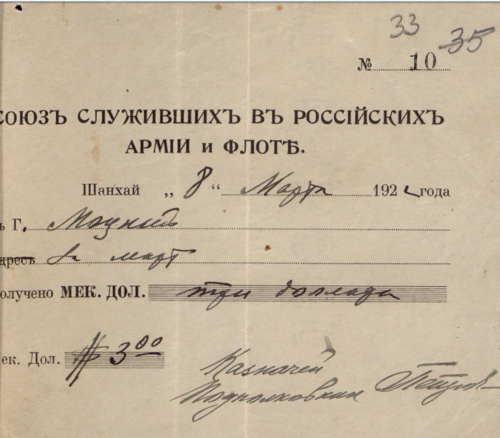 33 35
№ 10
СОЮЗЪ СЛУЖИВШИХЪ ВЪ РОССІЙСКИХЪ
АРМІИ и ФЛОТѢ.
Шанхай „ 8 “ Марта 192 2 года
ъ Г.
дресъ за март
олучено МЕК. ДОЛ. три доллара
ек. Дол. $ 3 00
Казначей
Подполковник